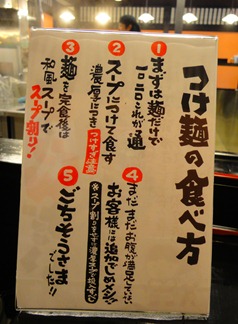 つけ麺の食べ方
①まずは麺だけで
一口これが通
②スープにつけて食す
濃厚につき
つけすぎ注意
③麺を完食後は
和風スープで
スープ割り！
④まだまだお腹が満足しては、
お客様には追加じめメシ
⑤ごちそうさま
でした!!